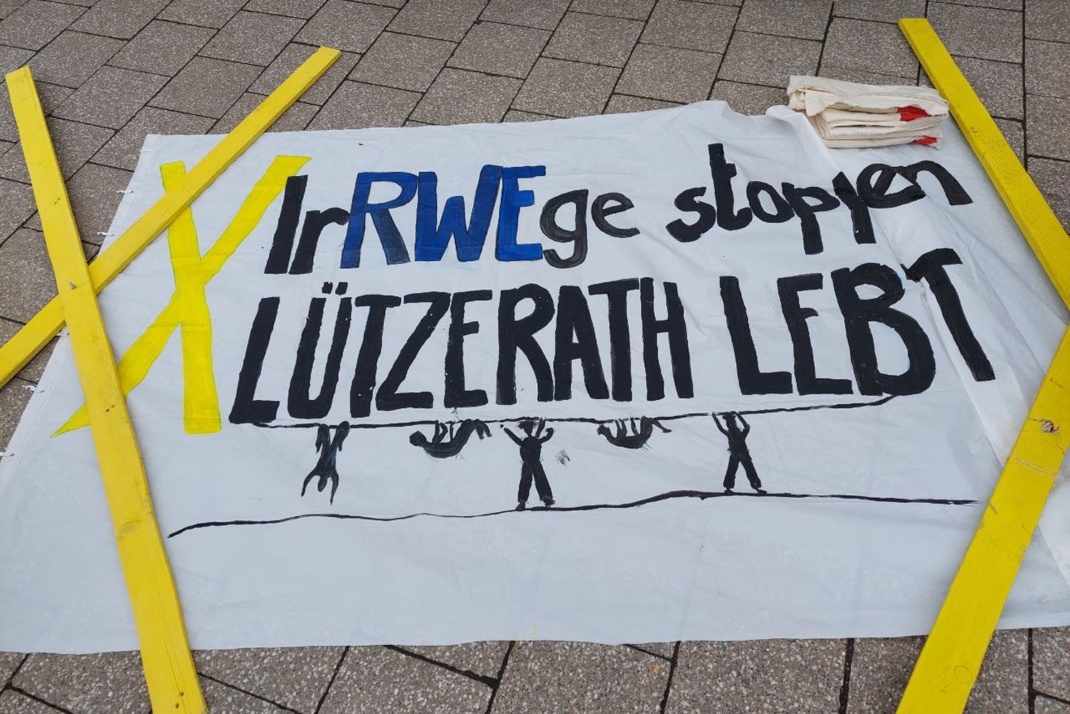 IrRWEge stoppen
LÜTZERATH LEBT